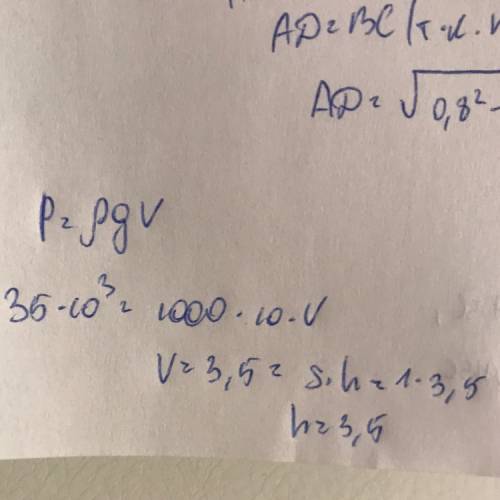 AD = BC (т.к.
AD = √0,8² -
P = ρgV
35·10³ = 1000·10·V
V = 3,5 = S·h = 1·3,5
h = 3,5